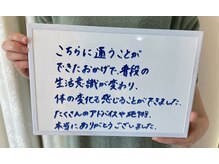 こちらに通うことが
できたおかげで、普段の
生活意識が変わり、
体の変化も感じることができました。
たくさんのアドバイスや施術、
本当にありがとうございました。